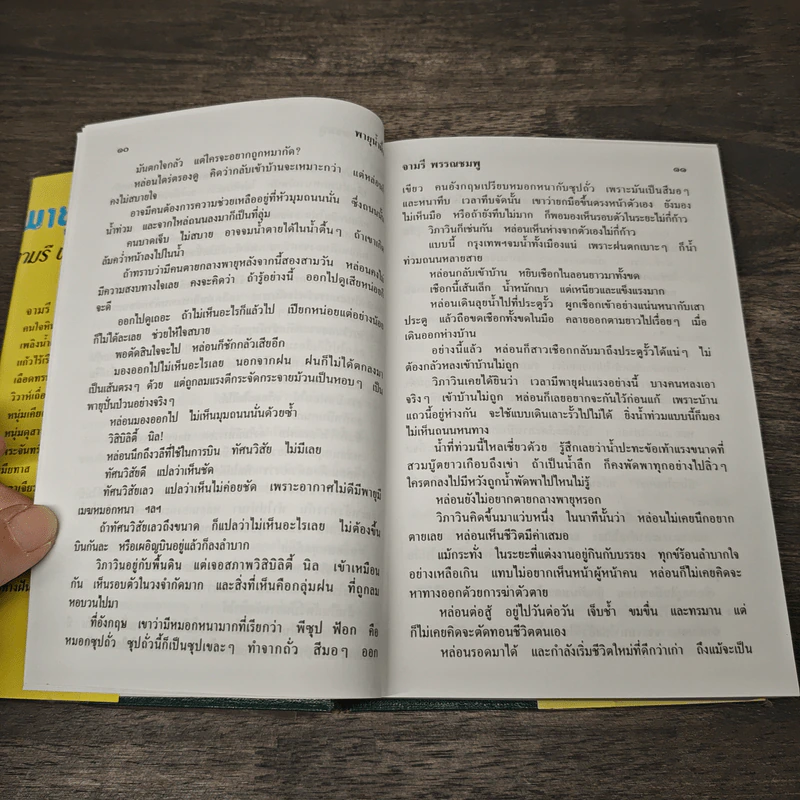 ๑๐
พายุน้ำ
มันตกใจกลัว แต่ใครจะอยากถูกหมากัด?
หล่อนไตร่ตรองดู คิดว่ากลับเข้าบ้านจะเหมาะกว่า แต่หล่อน
คงไม่สบายใจ
อาจมีคนต้องการความช่วยเหลืออยู่ที่หัวมุมถนนนั่น ซึ่งถนน
น้ำท่วม และจากไหล่ถนนลงมาก็เป็นที่ลุ่ม
คนบาดเจ็บ ไม่สบาย อาจจมน้ำตายได้ในน้ำตื้นๆ ถ้าเขาเกิด
ล้มคว่ำหน้าลงไปในน้ำ
ถ้าทราบว่ามีคนตายกลางพายุหลังจากนี้สองสามวัน หล่อนคง
มีความสงบทางใจเลย คงจะคิดว่า ถ้ารู้อย่างนี้ ออกไปดูเสียหน่อย
จะดี
ออกไปดูเถอะ ถ้าไม่เห็นอะไรก็แล้วไป เปียกหน่อยแต่อย่างน้อย
ก็ไม่ได้ละเลย ช่วยให้ใจสบาย
พอตัดสินใจจะไป หล่อนก็ชักกลัวเสียอีก
มองออกไปไม่เห็นอะไรเลย นอกจากฝน ฝนก็ไม่ได้ตกลงมา
เป็นเส้นตรงๆ ด้วย แต่ถูกลมแรงตีกระจัดกระจายม้วนเป็นหอบๆ เป็น
พายุปั่นป่วนอย่างจริงๆ
หล่อนมองออกไป ไม่เห็นมุมถนนนั่นด้วยซ้ำ
วิสิบิลิตี้ นิล!
หล่อนนึกถึงวลีที่ใช้ในการบิน ทัศนวิสัย ไม่มีเลย
ทัศนวิสัยดี แปลว่าเห็นชัด
ทัศนวิสัยเลว แปลว่าเห็นไม่ค่อยชัด เพราะอากาศไม่ดีมีพายุมี
เมฆหมอกหนา ฯลฯ
ถ้าทัศนวิสัยเลวถึงขนาด ก็แปลว่าไม่เห็นอะไรเลย ไม่ต้องขึ้น
บินกันละ หรือเผอิญบินอยู่แล้วก็ลงลำบาก
วิภาวินอยู่กับพื้นดิน แต่เจอสภาพวิสิบิลิตี้ นิล เข้าเหมือน
กัน เห็นรอบตัวในวงจำกัดมาก และสิ่งที่เห็นคือกลุ่มฝน ที่ถูกลม
หอบวนไปมา
ที่อังกฤษ เขาว่ามีหมอกหนามากที่เรียกว่า พีซุป ฟ็อก คือ
หมอกซุปถั่ว ซุปถั่วนี้ก็เป็นซุปเขละๆ ทำจากถั่ว สีมอๆ ออก
จามรี พรรณชมพู
๑๑
เขียว คนอังกฤษเปรียบหมอกหนากับซุปถั่ว เพราะมันเป็นสีมอๆ
และหนาทึบ เวลาทึบจัดนั้น เขาว่ายกมือขึ้นตรงหน้าตัวเอง ยังมอง
ไม่เห็นมือ หรือถ้ายังทึบไม่มาก ก็พอมองเห็นรอบตัวในระยะไม่กี่ก้าว
วิภาวินก็เช่นกัน หล่อนเห็นห่างจากตัวเองไม่กี่ก้าว
แบบนี้ กรุงเทพฯจมน้ำทั้งเมืองแน่ เพราะฝนตกเบาะๆ ก็น้ำ
ท่วมถนนหลายสาย
หล่อนกลับเข้าบ้าน หยิบเชือกไนลอนยาวมาทั้งขด
เชือกนี้เส้นเล็ก น้ำหนักเบา แต่เหนียวและแข็งแรงมาก
หล่อนเดินลุยน้ำไปที่ประตูรั้ว ผูกเชือกเข้าอย่างแน่นหนากับเสา
ประตู แล้วถือขดเชือกทั้งขดในมือ คลายออกตามยาวไปเรื่อยๆ เมื่อ
เดินออกห่างบ้าน
อย่างนี้แล้ว หล่อนก็สาวเชือกกลับมาถึงประตูรั้วได้แน่ๆ ไม่
ต้องกลัวหลงเข้าบ้านไม่ถูก
วิภาวินเคยได้ยินว่า เวลามีพายุฝนแรงอย่างนี้ บางคนหลงเอา
จริงๆ เข้าบ้านไม่ถูก หล่อนก็อยากจะกันไว้ก่อนแก้ เพราะบ้าน
แถวนี้อยู่ห่างกัน จะใช้แบบเดินเลาะรั้วไปไม่ได้ ยิ่งน้ำท่วมแบบนี้ก็มอง
ไม่เห็นถนนหนทาง
น้ำที่ท่วมนี้ไหลเชี่ยวด้วย รู้สึกเลยว่าน้ำปะทะข้อเท้าแรงขนาดที่
สวมบู๊ตยาวเกือบถึงเข่า ถ้าเป็นน้ำลึก ก็คงพัดพาทุกอย่างไปลิ่วๆ
ใครตกลงไปมีหวังถูกน้ำพัดพาไปไหนไม่รู้
หล่อนยังไม่อยากตายกลางพายุหรอก
วิภาวินคิดขึ้นมาแว่บหนึ่ง ในนาทีนั้นว่า หล่อนไม่เคยนึกอยาก
ตายเลย หล่อนเห็นชีวิตมีค่าเสมอ
แม้กระทั่ง ในระยะที่แต่งงานอยู่กินกับบรรยง ทุกข์ร้อนลำบากใจ
อย่างเหลือเกิน แทบไม่อยากเห็นหน้าผู้หน้าคน หล่อนก็ไม่เคยคิดจะ
หาทางออกด้วยการฆ่าตัวตาย
หล่อนต่อสู้ อยู่ไปวันต่อวัน เจ็บช้ำ ขมขื่น และทรมาน แต่
ก็ไม่เคยคิดจะตัดทอนชีวิตตนเอง
หล่อนรอดมาได้ และกำลังเริ่มชีวิตใหม่ที่ดีกว่าเก่า ถึงแม้จะเป็น